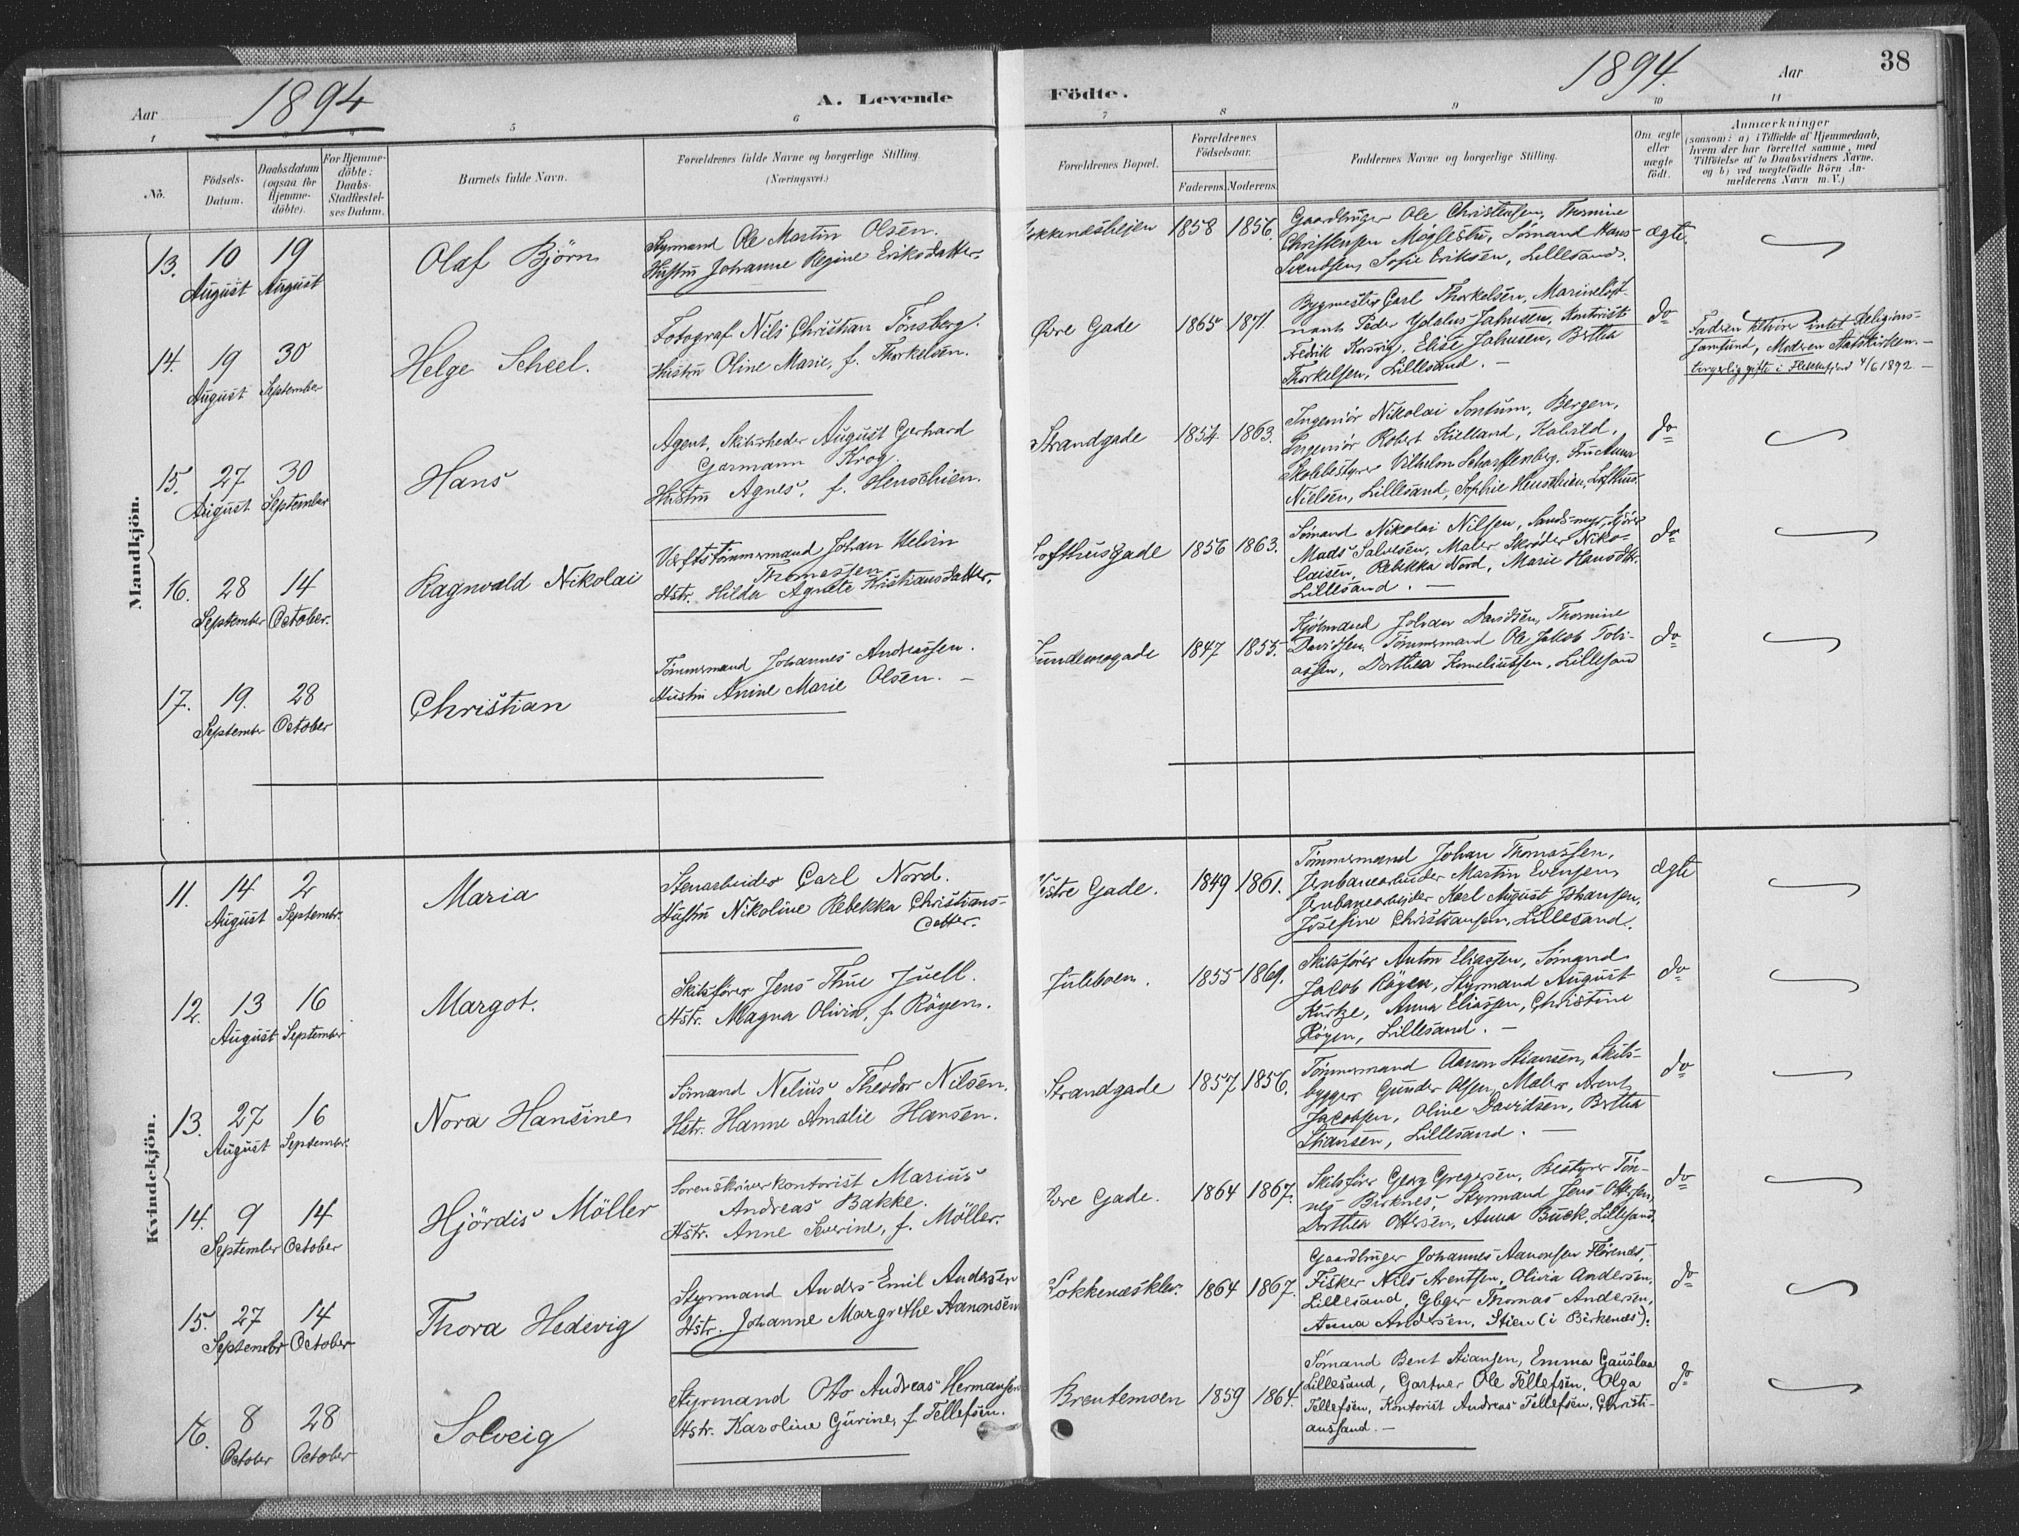 Aar 1894 A. Levende
Födte. 1894. Aar 38
1 5 6 7 8 9 10 11
Nö.
Födsels-
Datum.
Daabsdatum
(ogsaa for
Hjemme-
döbte).
For Hjemme-
döbte:
Daabs-
Stadfæstel-
ses Datum.
Barnets fulde Navn.
Forældrenes fulde Navne og borgerlige Stilling.
(Næringsvei.)
Forældrenes Bopæl.
Forældrenes
Födselsaar.
Faderens. Moderens.
Faddernes Navne og borgerlige Stilling.
Om ægte
eller
uægte
födt.
Anmærkninger
(saasom: a) i Tilfælde af Hjemmedaab,
hvem der har forrettet samme, med
Tilföielse af to Daabsvidners Navne,
og b) ved uægtefödte Börn An-
melderens Navn m. V.)
Mandkjön.
13. 10 August 19 August Olaf Björn
Styrmand Ole Martin Olsen.
Hustru Johanne Regine Eriksdatter.
1858 1856.
Gaardbruger Ole Christensen, Thomine
Christensen Möglestu, Sømand Hans
Svendsen, Sofie Eriksen, Lillesand.
ægte.
14. 19 August 30 September Helge Scheel.
Fotograf Nils Christian Tönsberg.
Hustru Oline Marie, f. Thorkelsen.
Øvre Gade 1865 1871.
Bygmester Carl Thorkelsen, Marineløjt-
nant Peder Ydalus Jahnsen, Kontorist
Fredrik Korsvig, Elise Jahnsen, Bertha
Thorkelsen, Lillesand. –
do
Fadren tilhører intet Religions-
samfund, Modren Statskirken. –
borgerlig gifte i Flekkefjord 4/6 1892 –
15. 27 August 30 September Hans
Agent, Skibsrheder August Gerhard
Garmann Krog.
Hustru Agnes, f. Henschien.
Strandgade 1854 1863.
Ingeniør Nikolai Sontum, Bergen,
Ingeniør Robert Kielland,
Skolebestyrer Vilhelm Scharffenberg, Fru Anna
Nielsen, Lillesand, Sophie Henschien, Lofthus
do
16. 28 September 14 October. Ragnvald Nikolai
Værftstømmermand Johan Melvin
Thomassen
Hstr. Hilda Agnete Kristiansdatter.
Lofthusgade 1856 1863.
Sømand Nikolai Nilsen,
Mads Salvesen, Maler Schrøder Niko-
laisen, Rebekka Nord, Marie Hansdtr.
Lillesand. –
do
17. 19. September 28 October Christian
Tömmermand Johannes Andreassen.
Hustru Anine Marie Olsen. –
Lundemogade 1847 1855.
Johan Davidsen, Thomine
Davidsen, Tömmermand Ole Jakob Tobi-
assen, Dorthea Korneliussen, Lillesand
do
Kvindekjön.
11. 14 August 2 Septembr. Maria
Stenarbeider Carl Nord.
Hustru Nikoline Rebekka Christians-
datter.
Vestre Gade. 1849 1861.
Tömmermand Johan Thomassen,
Jernbanearbeider Martin Evensen,
Jernbanearbejder Karl August Johansen,
Josefine Christiansen, Lillesand.
ægte
12. 13 August 16 September Margot.
Skibsfører Jens Thue Juell.
Hstr. Magna Olivia, f. Röyen.
1855 1869.
Skibsfører Anton Eliassen, Sømand
Jacob Röyen, Styrmand August
Kurtze, Anna Eliassen, Christine
Röyen, Lillesand. –
do
13. 27 August 16 Septembr. Nora Hansine
Sömand Nelius Theodor Nilsen.
Hstr. Hanne Amalie Hansen.
Strandgade 1857 1856.
Tömmermand Aanon Stiansen, Skibs-
bygger Gunder Olsen, Maler Arent
Jacobsen, Olive Davidsen, Bertha
Stiansen, Lillesand. –
do
14. 9 September 14 October Hjördis Möller
Sorenskriverkontorist Marius
Andreas Bakke.
Hstr. Anne Severine, f. Möller.
Øvre Gade. 1864 1867.
Skibsfører Georg Gregersen, Bestyrer Tön-
nes Birknes, Styrmand Jens Ottersen,
Dorthea Ottersen, Anna Buck, Lillesand.
do
15. 27 September 14 October Thora Hedevig
Styrmand Anders Emil Andersen
Hstr. Johanne Margrethe Aanonsen
1864 1867.
Gaardbruger Johannes Aanonsen Flörenæs,
Fisker Nils Arentsen, Olivia Andersen,
Lillesand, Gbger Thomas Andersen,
Anna Andersen, Stien (i Birkenæs).
do
16. 8 October 28 October Solveig
Styrmand Otto Andreas Hermansen
Hstr. Karoline Gurine, f. Tellefsen.
Brentemoen 1859 1864.
Sömand Bent Stiansen, Emma Gauslaa
Lillesand, Gartner Ole Tellefsen, Olga
Tellefsen, Kontorist Andreas Tellefsen, Christi-
anssand. –
do